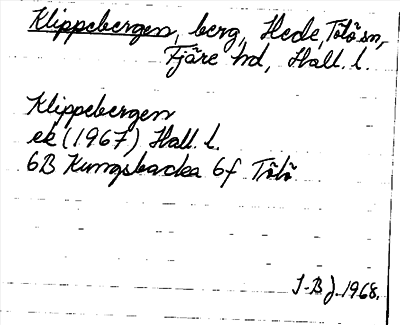 Klippebergen, berg, Hede, Tölö sn,
Fjäre hd, Hall. l.
Klippebergen
ek (1967) Hall. l.
6B Kungsbacka 6f Tölö
I-B J. 1968.